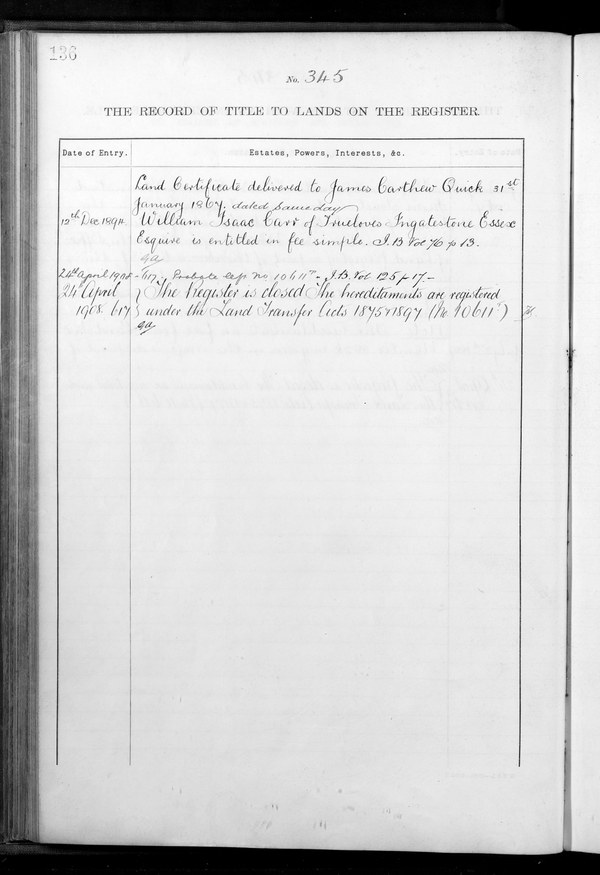 136
No. 345
THE RECORD OF TITLE TO LANDS ON THE REGISTER
Date of Entry. Estates, Powers, Interests, &c.
Land Certificate delivered to James Carthew Quick 31st
January 1867. dated same day
12th Dec 1894. William Isaac Carr of Trueloves Ingatestone Essex
Esquire is entitled in fee simple. I.B Vol 76 p 13.
24th April 1908 - 617. Probate No 10611 - I.B Vol 125 p 17. -
24th April The Register is closed The hereditaments are registered
1908. 617 under the Land Transfer Acts 1875 & 1897 (No 10611)